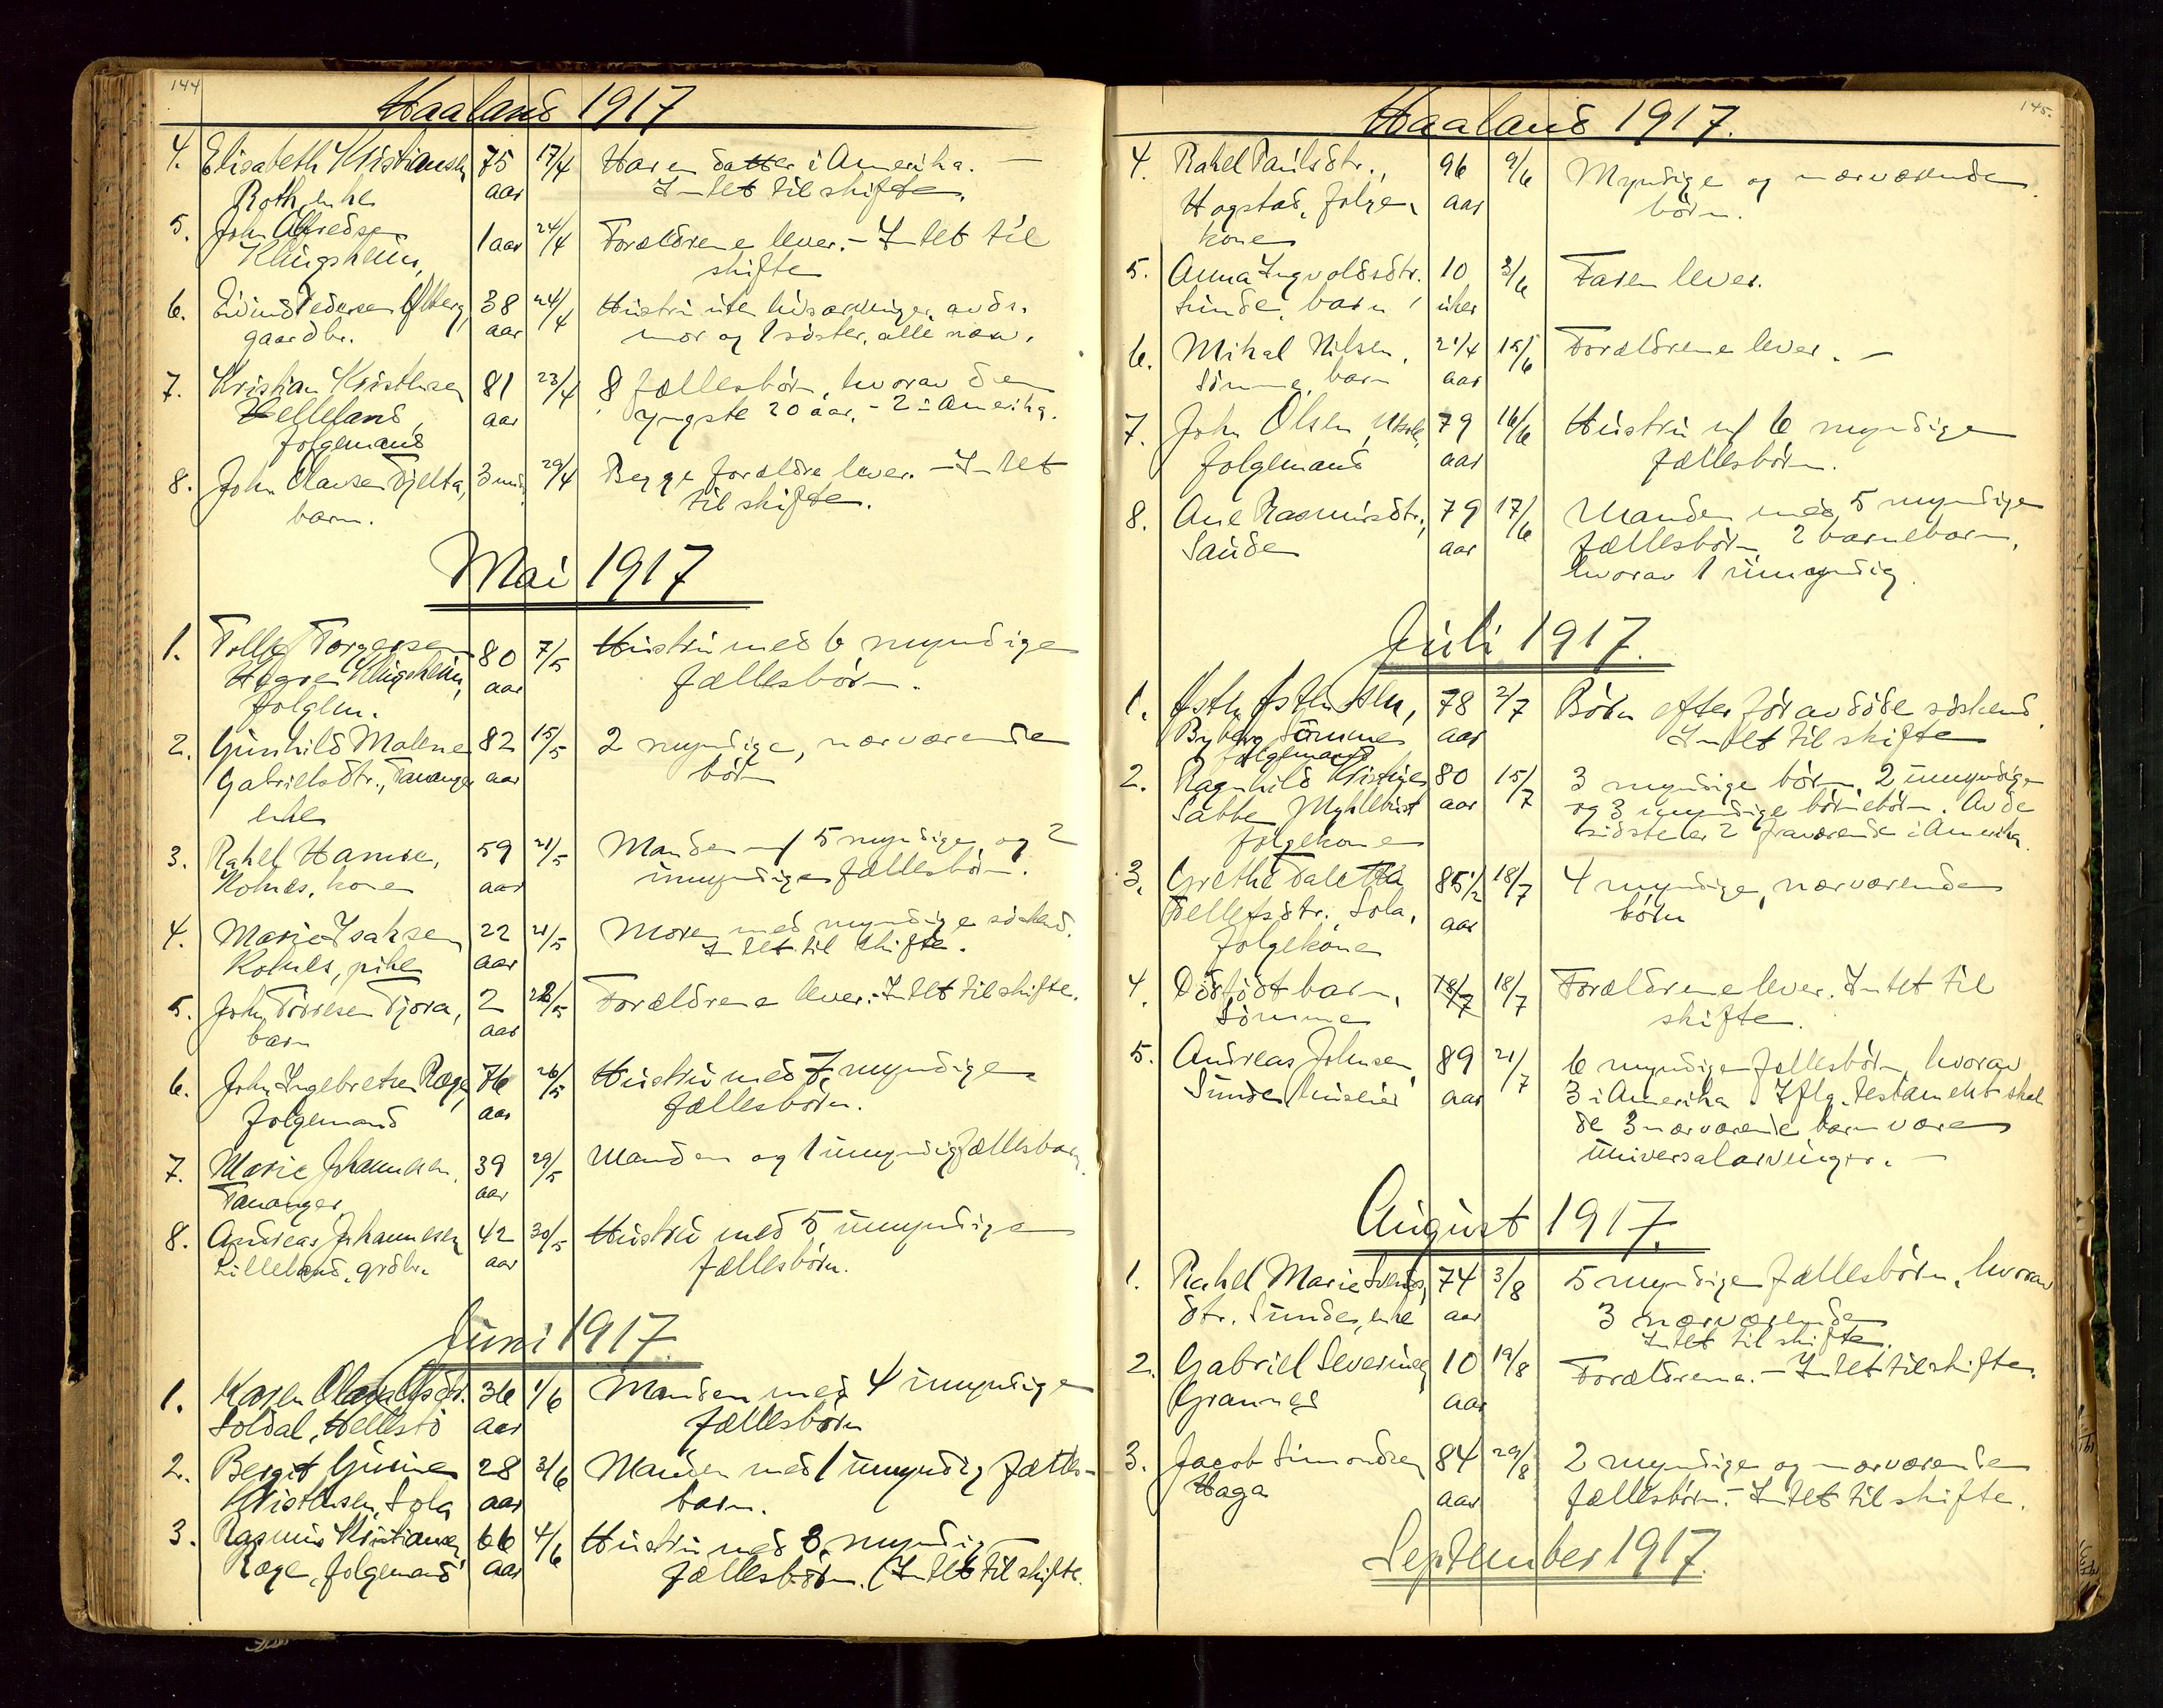 144
Haaland 1917
4. Elisabeth Kristiansen 75 17/4 Har en datter i Amerika. —
Roth, enke aar Intet til skifte.
5. John Alfredsen 1 aar 24/4 Forældrene lever. - Intet til
Klingsheim, skifte
6. Eivind Pedersen 38 24/4 Hustru uten livsarvinger, avdr.
gaardbr. aar mor og 1 søster, alle nærv.
7. Kristian Kristensen 81 23/4 8 fællesbörn, hvorav den
Helleland, aar yngste 20 aar, - 2 i Amerika.
folgemand
8. John Olausen Tjelta, 3 mdr 29/4 Begge forældre lever. - Intet
barn. til skifte.
Mai 1917
1. Tollef Torgersen 80 7/5 Hustru med 6 myndige
Hogre Klingsheim, aar fællesbörn.
folgem.
2. Gunhild Malene 82 15/5 2 myndige, nærværende
Gabrielsdtr., Tananger aar börn
enke
3. Rahel Hamre, 59 21/5 Manden m/ 5 myndige og 2
Kolnes, kone aar umyndige fællesbörn.
4. Marie Isaksen 22 21/5 Moren med myndige söskend.
Kolnes, pike aar Intet til skifte.
5. John Törresen Tjora, 2 22/5 Forældrene lever. - Intet til skifte.
barn aar
6. John Ingebretsen Ræge, 76 26/5 Hustru med 7 myndige
folgemand aar fællesbörn.
7. Marie Johannesen, 39 29/5 Manden og 1 umyndig fællesbarn.
Tananger, aar
8. Andreas Johannesen 42 30/5 Hustru med 5 umyndige
Lilleland, grdbr. aar fællesbörn.
Juni 1917.
1. Karen 36 1/6 Manden med 4 umyndige
Soldal, Hellestö aar fællesbörn
2. Bergit Gurine 28 3/6 Manden med 1 umyndig fælles-
Kristensen, Sola aar barn.
3. Rasmus Kristiansen 66 4/6 Hustru med 8 myndige
Ræge, folgemand aar fællesbörn. (Intet til skifte.
145.
Haaland 1917.
4. Rahel Paulsdtr., 96 9/6 Myndige og nærværende
Hogstad, folge- aar börn.
kone
5. Anna Ingvoldsdtr. 10 3/6 Faren lever.
Sunde, barn uker
6. Mikal Nilsen, 2 1/4 15/6 Forældrene lever. —
Sömme, barn aar
7. John Olsen 79 16/6 Hustru m/ 6 myndige
folgemand aar fællesbörn.
8. Ane Rasmusdtr., 79 17/6 Manden med 5 myndige
Sande aar fællesbörn, 2 barnebarn,
hvorav 1 umyndig.
Juli 1917.
1. 78 2/7 Börn efter för avdöde söskend.
Byberg Sömme aar Intet til skifte
folgemand
2. Ragnhild 80 15/7 3 myndige börn, 2 umyndige
Sabbe Myklebust aar og 3 myndige börnebörn. Av de
folgekone sidste er 2 fraværende i Amerika.
3. Grethe Taletta 85 1/2 18/7 4 myndige, nærværende
Tollefsdtr. Sola, aar börn
folgekone
4. Dödfödt barn, 18/7 18/7 Forældrene lever. Intet til
Sömme skifte.
5. Andreas Johnsen 89 21/7 6 myndige fællesbörn, hvorav
Sunde, huseier aar 3 i Amerika. Iflg. testament skal
de 3 nærværende barn være
universalarvinger. —
August 1917.
1. Rahel Marie Svends- 74 3/8 5 myndige fællesbörn, hvorav
dtr. Sunde, enke aar 3 nærværende
Intet til skifte.
2. Gabriel Severinsen 10 19/8 Forældrene. - Intet til skifte.
Grannes aar
3. Jacob Simonsen 84 29/8 2 myndige og nærværende
Haga aar fællesbörn. - Intet til skifte.
September 1917.